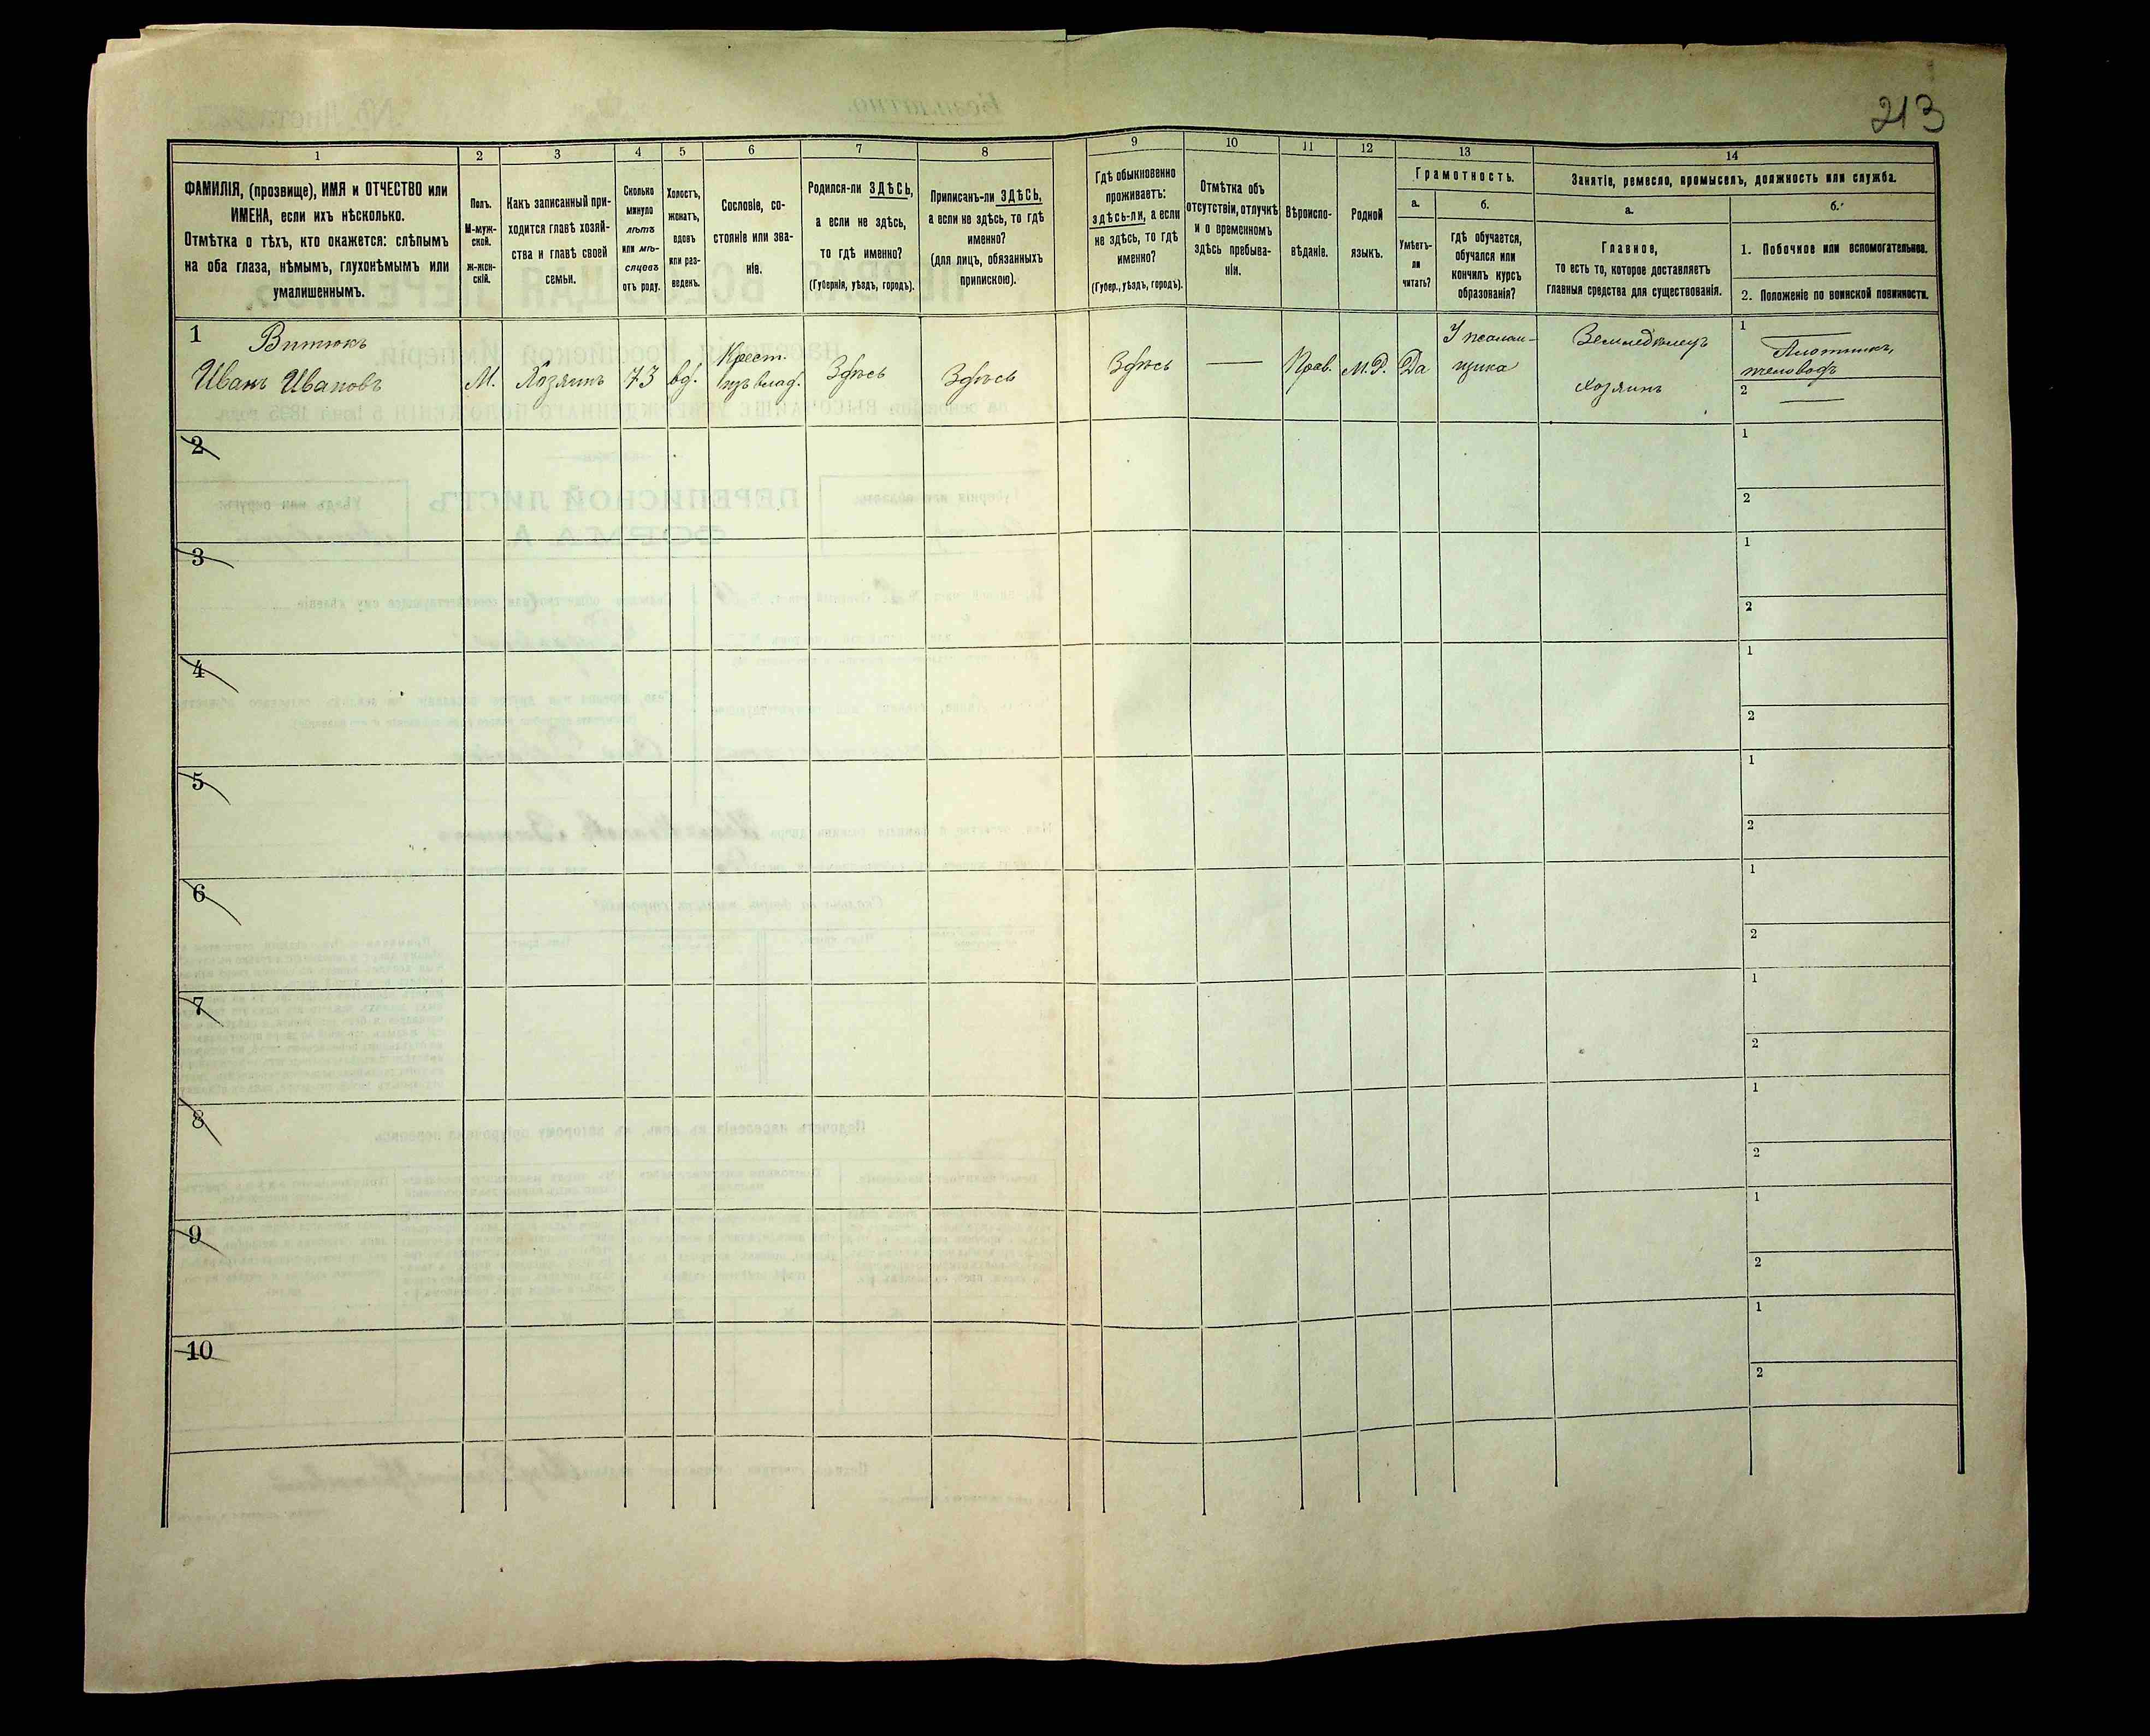 213
1
2
3
4
5
6
7
8
9
10
11
12
13
14
ФАМИЛІЯ, (прозвище), ИМЯ и ОТЧЕСТВО или
ИМЕНА, если ихъ нѣсколько.
Отмѣтка о тѣхъ, кто окажется: слѣпымъ
на оба глаза, нѣмымъ, глухонѣмымъ или
умалишеннымъ.
Полъ.
М-муж-
ской.
ж-жен-
скій.
Какъ записанный при-
ходится главѣ хозяй-
ства и главѣ своей
семьи.
Сколько
минуло
лѣтъ
или мѣ-
сяцевъ
отъ роду.
Холостъ,
женатъ,
вдовъ
или раз-
веденъ.
Сословіе, со-
стояніе или зва-
ніе.
Родился-ли ЗДѢСЬ,
а если не здѣсь,
то гдѣ именно?
(Губернія, уѣздъ, городъ).
Приписанъ-ли ЗДѢСЬ,
а если не здѣсь, то гдѣ
именно?
(для лицъ, обязанныхъ
припискою).
Гдѣ обыкновенно
проживаетъ:
здѣсь-ли, а если
не здѣсь, то гдѣ
именно?
(Губер., уѣздъ, городъ).
Отмѣтка объ
отсутствіи, отлучкѣ
и о временномъ
здѣсь пребыва-
ніи.
Вѣроиспо-
вѣданіе.
Родной
языкъ.
Грамотность.
а.
Умѣетъ-
ли
читать?
б.
Гдѣ обучается,
обучался или
кончилъ курсъ
образованія?
Занятіе, ремесло, промыселъ, должность или служба.
а.
Главное,
то есть то, которое доставляетъ
главныя средства для существованія.
б.
1. Побочное или вспомогательное.
2. Положеніе по воинской повинности.
1 Витюкъ
Иванъ Ивановъ
М.
Хозяинъ
73
вд.
Крест.
изъ влад.
Здѣсь
Здѣсь
Здѣсь
—
Прав.
М.Р.
Да
У псалом-
щика
Земледѣлецъ
Хозяинъ
1 —
Плотникъ,
пчеловодъ
2 —
2
1
2
3
1
2
4
1
2
5
1
2
6
1
2
7
1
2
8
1
2
9
1
2
10
1
2